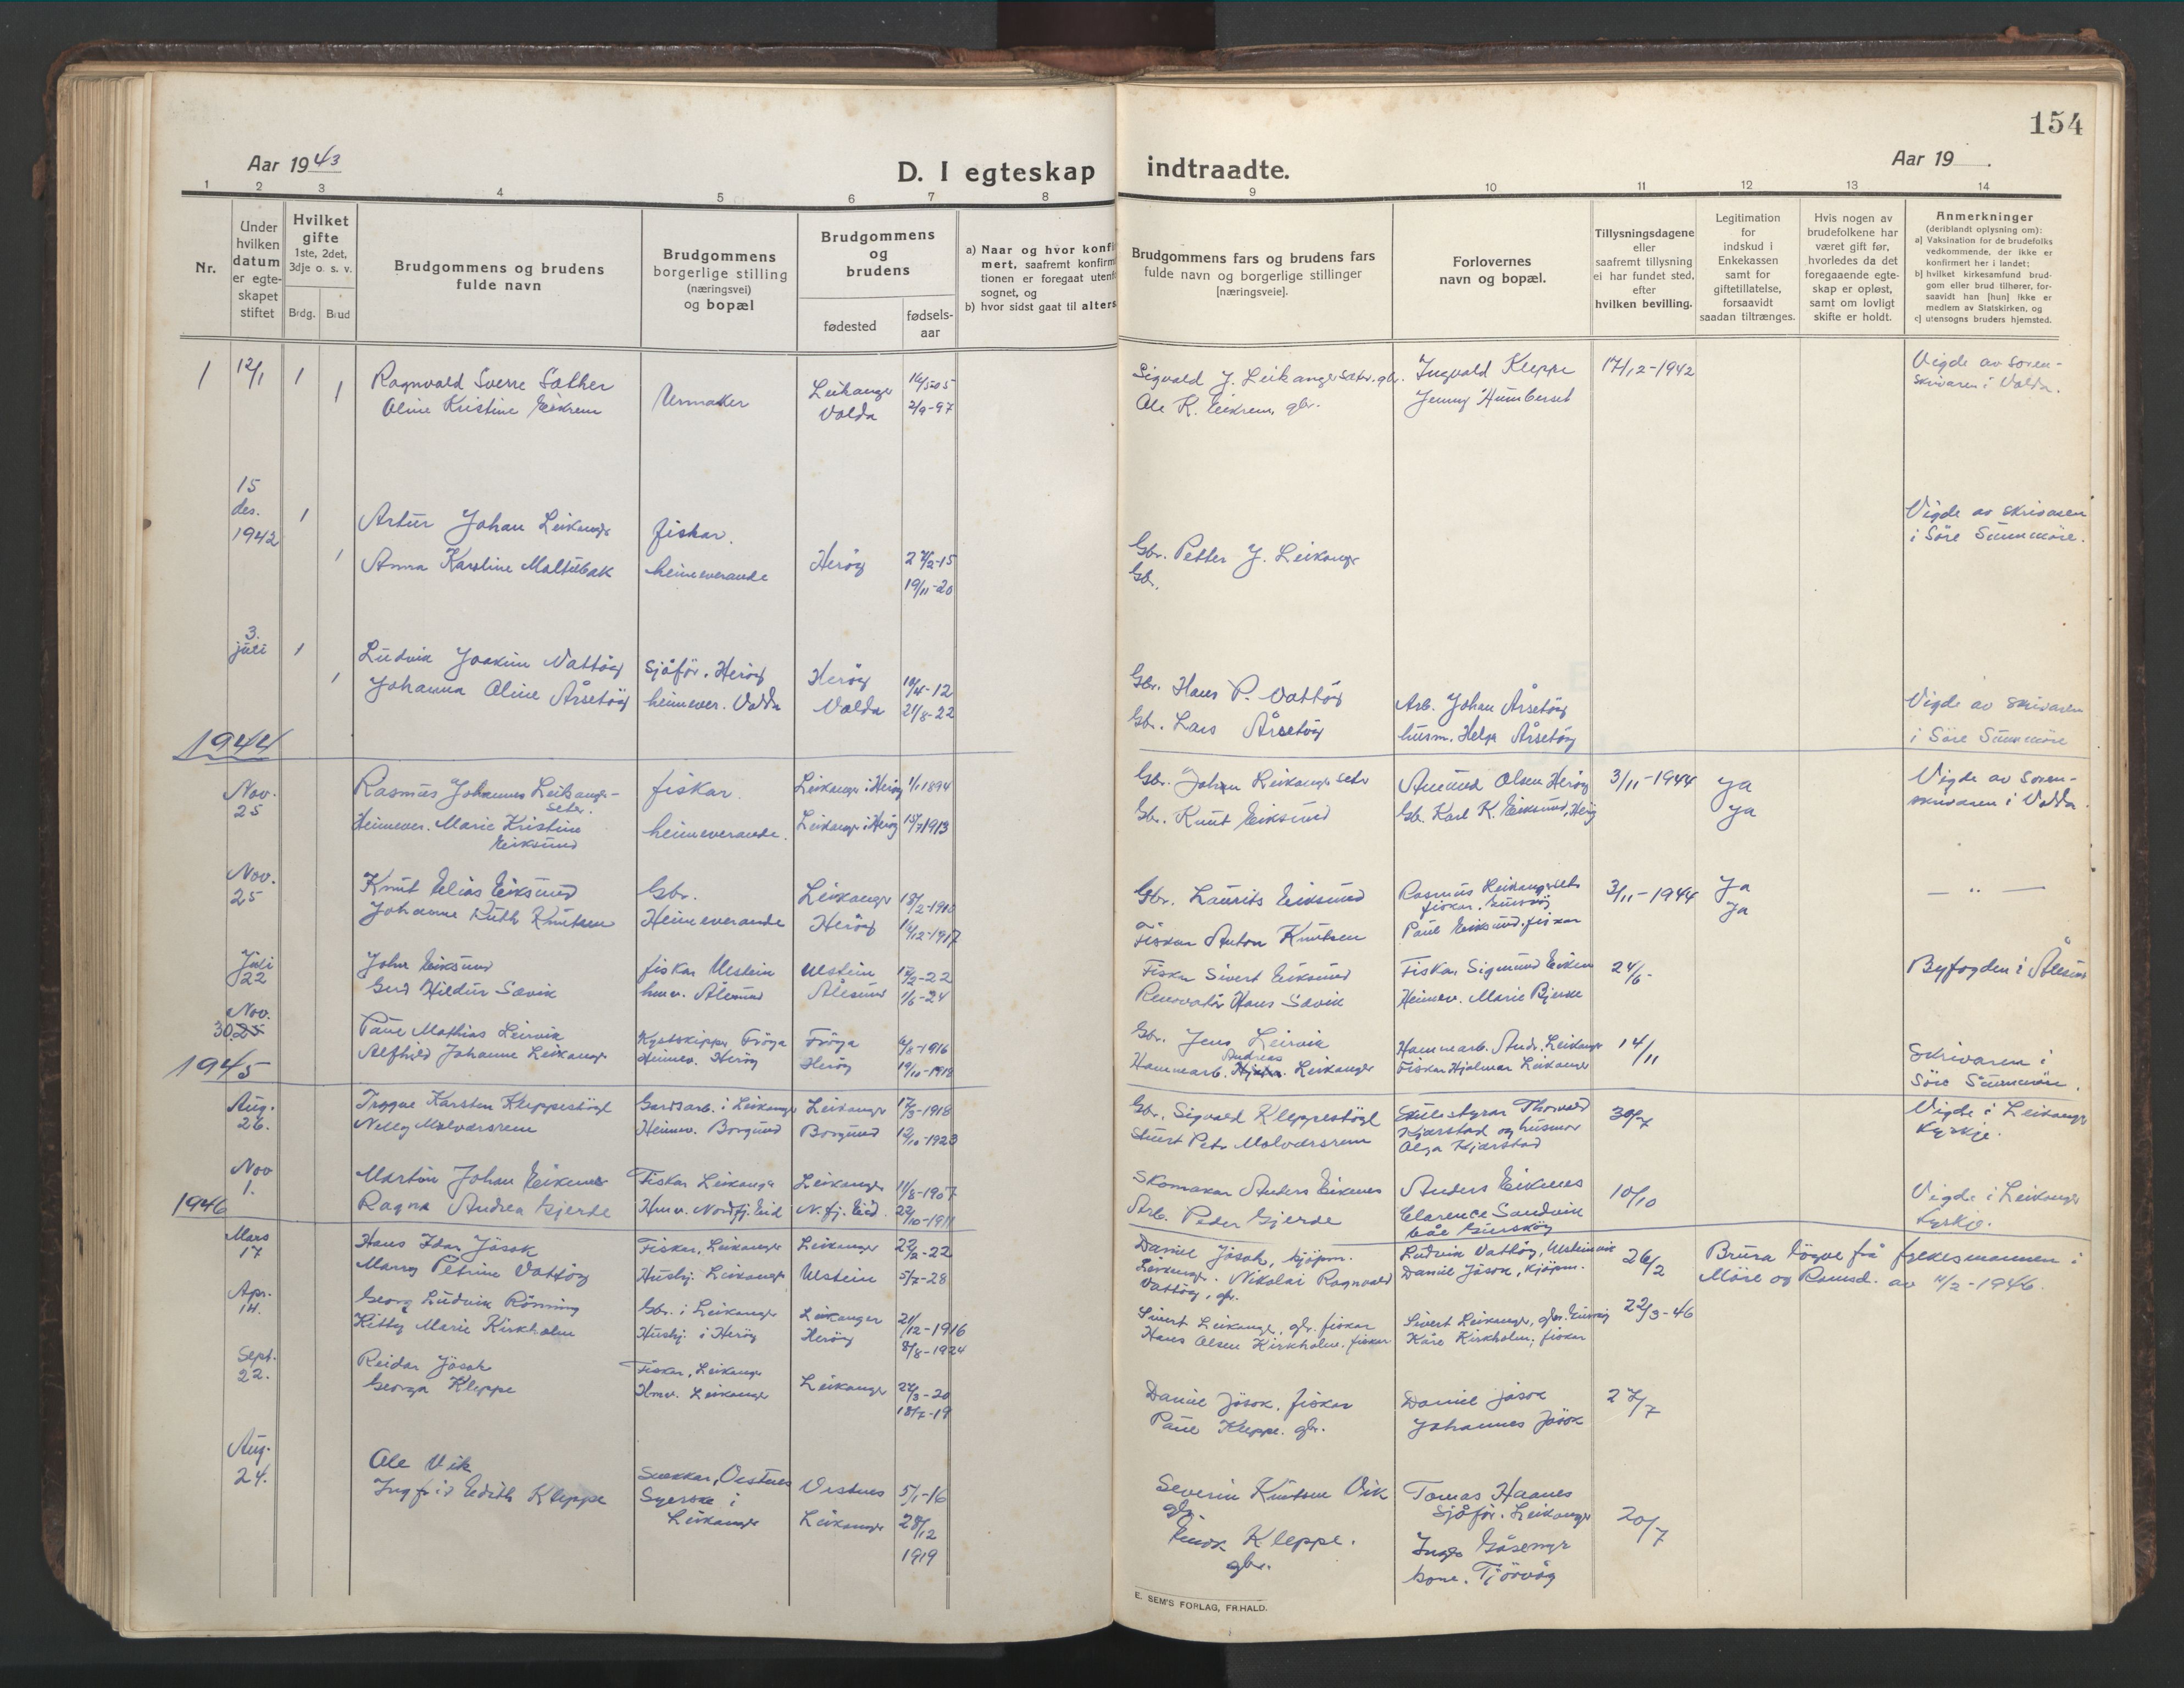 154
Aar 1943
D. I egteskap indtraadte.
Aar 19 .
1 2 3 4 5 6 7 8 9 10 11 12 13 14
Nr.
Under hvilken datum er egte-skapet stiftet
Hvilket gifte
1ste, 2det, 3dje o. s. v.
Brdg. Brud
Brudgommens og brudens
fulde navn
Brudgommens
borgerlige stilling
(næringsvei)
og bopæl
Brudgommens
og
brudens
fødested
fødsels-
aar
a) Naar og hvor konfi
mert, saafremt konfirm
tionen er foregaat utenf
sognet, og
b) hvor sidst gaat til alters
Brudgommens fars og brudens fars
fulde navn og borgerlige stillinger
[næringsveie].
Forlovernes
navn og bopæl.
Tillysningsdagene
eller
saafremt tillysning
ei har fundet sted,
efter
hvilken bevilling.
Legitimation
for
indskud i
Enkekassen
samt for
giftetillatelse,
forsaavidt
saadan tiltrænges.
Hvis nogen av
brudefolkene har
været gift før,
hvorledes da det
foregaaende egte-
skap er opløst,
samt om lovligt
skifte er holdt.
Anmerkninger
(deriblandt oplysning om):
a) Vaksination for de brudefolks
vedkommende, der ikke er
konfirmert her i landet;
b) hvilket kirkesamfund brud-
gom eller brud tilhører, for-
saavidt han [hun] ikke er
medlem av Statskirken, og
c) utensogns bruders hjemsted.
1 12/1 1 Ragnvald Sverre Sæther Urmaker Leikanger 16/5-05 Sigvald J. Leikanger sætr. gbr. Ingvald Kleppe 17/12-1942 Vigde av soren-
1 Oline Kristine Eikrem Volda 2/9-97 Ole K. Eikrem, gbr. Jenny Humberset skrivaren i Volda.
15
des.
1942
1 Artur Johan Leikanger fiskar. Vigde av skrivaren
i Söre Sunnmöre.
1 Anna Karoline Moltubak heimeverande Heröy 27/2-15 Gbr. Petter J. Leikanger
19/11-20 Gbr.
3.
juli 1 Ludvik Joakim Vattöy Sjåför. Heröy Heröy 10/4-12 Gbr. Hans P. Vattöy Arb. Johan Årsetöy Vigde av skrivaren
1 Johanna Oline Årsetöy heimever. Volda Volda 21/8-22 Gbr. Lars Årsetöy husm. Helga Årsetöy i Söre Sunnmöre
1944
Nov.
25
Rasmus Johannes Leikanger-
seter. fiskar. Leikanger i Heröy 1/1 1894 Gbr. Johan Leikanger seter Amund Olsen Heröy 3/11-1944 ja Vigde av soren-
Heimever. Marie Kristine
Eiksund heimeverande. Leikanger i Heröy 15/7 1913 Gbr. Knut Eiksund Gb. Karl K. Eiksund, Heröy ja skrivaren i Volda.
Nov.
25
Knut Elias Eiksund Gbr. Leikanger 18/2-1910 Gbr. Laurits Eiksund Rasmus Leikangerseter
fiskar. Gurskøy 3/11-1944 Ja — " —
Johanne Ruth Knutsen Heimeverande Heröy 16/12-1917 Fiskar Anton Knutsen Paul Eiksund, fiskar Ja
Juli
22
John Eiksund fiskar Ulstein Ulstein 17/2-22 Fiskar Sivert Eiksund Fiskar Sigmund Eiksund 24/6- Byfogden i Ålesund
Gerd Hildur Sævik hmv. Ålesund Ålesund 1/6-24 Hans Sævik Heimev. Marie Bjerke
Nov.
30. 25
Paul Mathias Leirvik Kystskipper Fröya Fröya 6/8-1916 Gbr. Jens Leirvik Hammarb. Andr. Leikanger 14/11 Skrivaren i
Alfhild Johanne Leikanger Heimev. Heröy Heröy 19/10-1918 Hammarb. Andreas Leikanger Fiskar Hjalmar Leikanger Söre Sunnmöre.
1945
Aug.
26.
Trygve Karsten Kleppestöyl Gardsarb. i Leikanger Leikanger 17/3-1918 Gbr. Sigvald Kleppestöyl Skulestyrar Thorvald 30/7 Vigde i Leikanger
Nelly Molværsrem Heimev. Borgund Borgund 12/10-1923 Stuert Petr Molværsrem Kjærstad og husmor kyrkje.
Olga Kjærstad
Nov
1.
Martin Johan Eikenes Fiskar Leikanger Leikanger 11/8-1907 Skomakar Anders Eikenes Anders Eikenes 10/10 Vigde i Leikanger
Ragna Andrea Gjerde Hmv. Nordfj. Eid N. fj. Eid. 22/10-1911 Arb. Peder Gjerde Clarence Sandvik kyrkje.
båe Gurskøy
1946
Mars
17
Hans Idar Jösok Fiskar, Leikanger Leikanger 22/2-22 Daniel Jösok, kjöpm. Ludvik Vattöy, Ulsteinvik 26/2 Brura løyve frå fylkesmannen i
Marry Petrine Vattöy Hushj. Leikanger Ulstein 5/7-28 Leikanger. Nikolai Ragnvald Daniel Jösok, Kjöpm. Möre og Romsd. av 11/2-1946.
Vattöy, gbr.
Apr.
14.
Georg Ludvik Rönning Gbr. i Leikanger Leikanger 21/12-1916 Sivert Leikanger, gbr. fiskar Sivert Leikanger, gbr. Gurskøy 22/3-46
Kitty Marie Kirkholm Hushj. i Heröy Heröy 8/8-1924 Hans Olsen Kirkholm. fiskar Kåre Kirkholm, fiskar
Sept.
22.
Reidar Jösok Fiskar, Leikanger Leikanger 27/3-20 Daniel Jösok, fiskar Daniel Jösok 27/7
Georga Kleppe Hmv. Leikanger 18/7-19 Paul Kleppe. gbr. Johannes Jösok
Aug.
24.
Ole Vik Snekkar, Vestnes Vestnes 5/1-16 Severin Knutsen Vik Tomas Haanes
gbr. Sjåför. Leikanger 20/7
Ingfrid Edith Kleppe Syerske i
Leikanger Leikanger 28/12
1919 Kleppe.
gbr. Gåsemyr
kone. Tjörvåg
E. SEM'S FORLAG, FR.HALD.